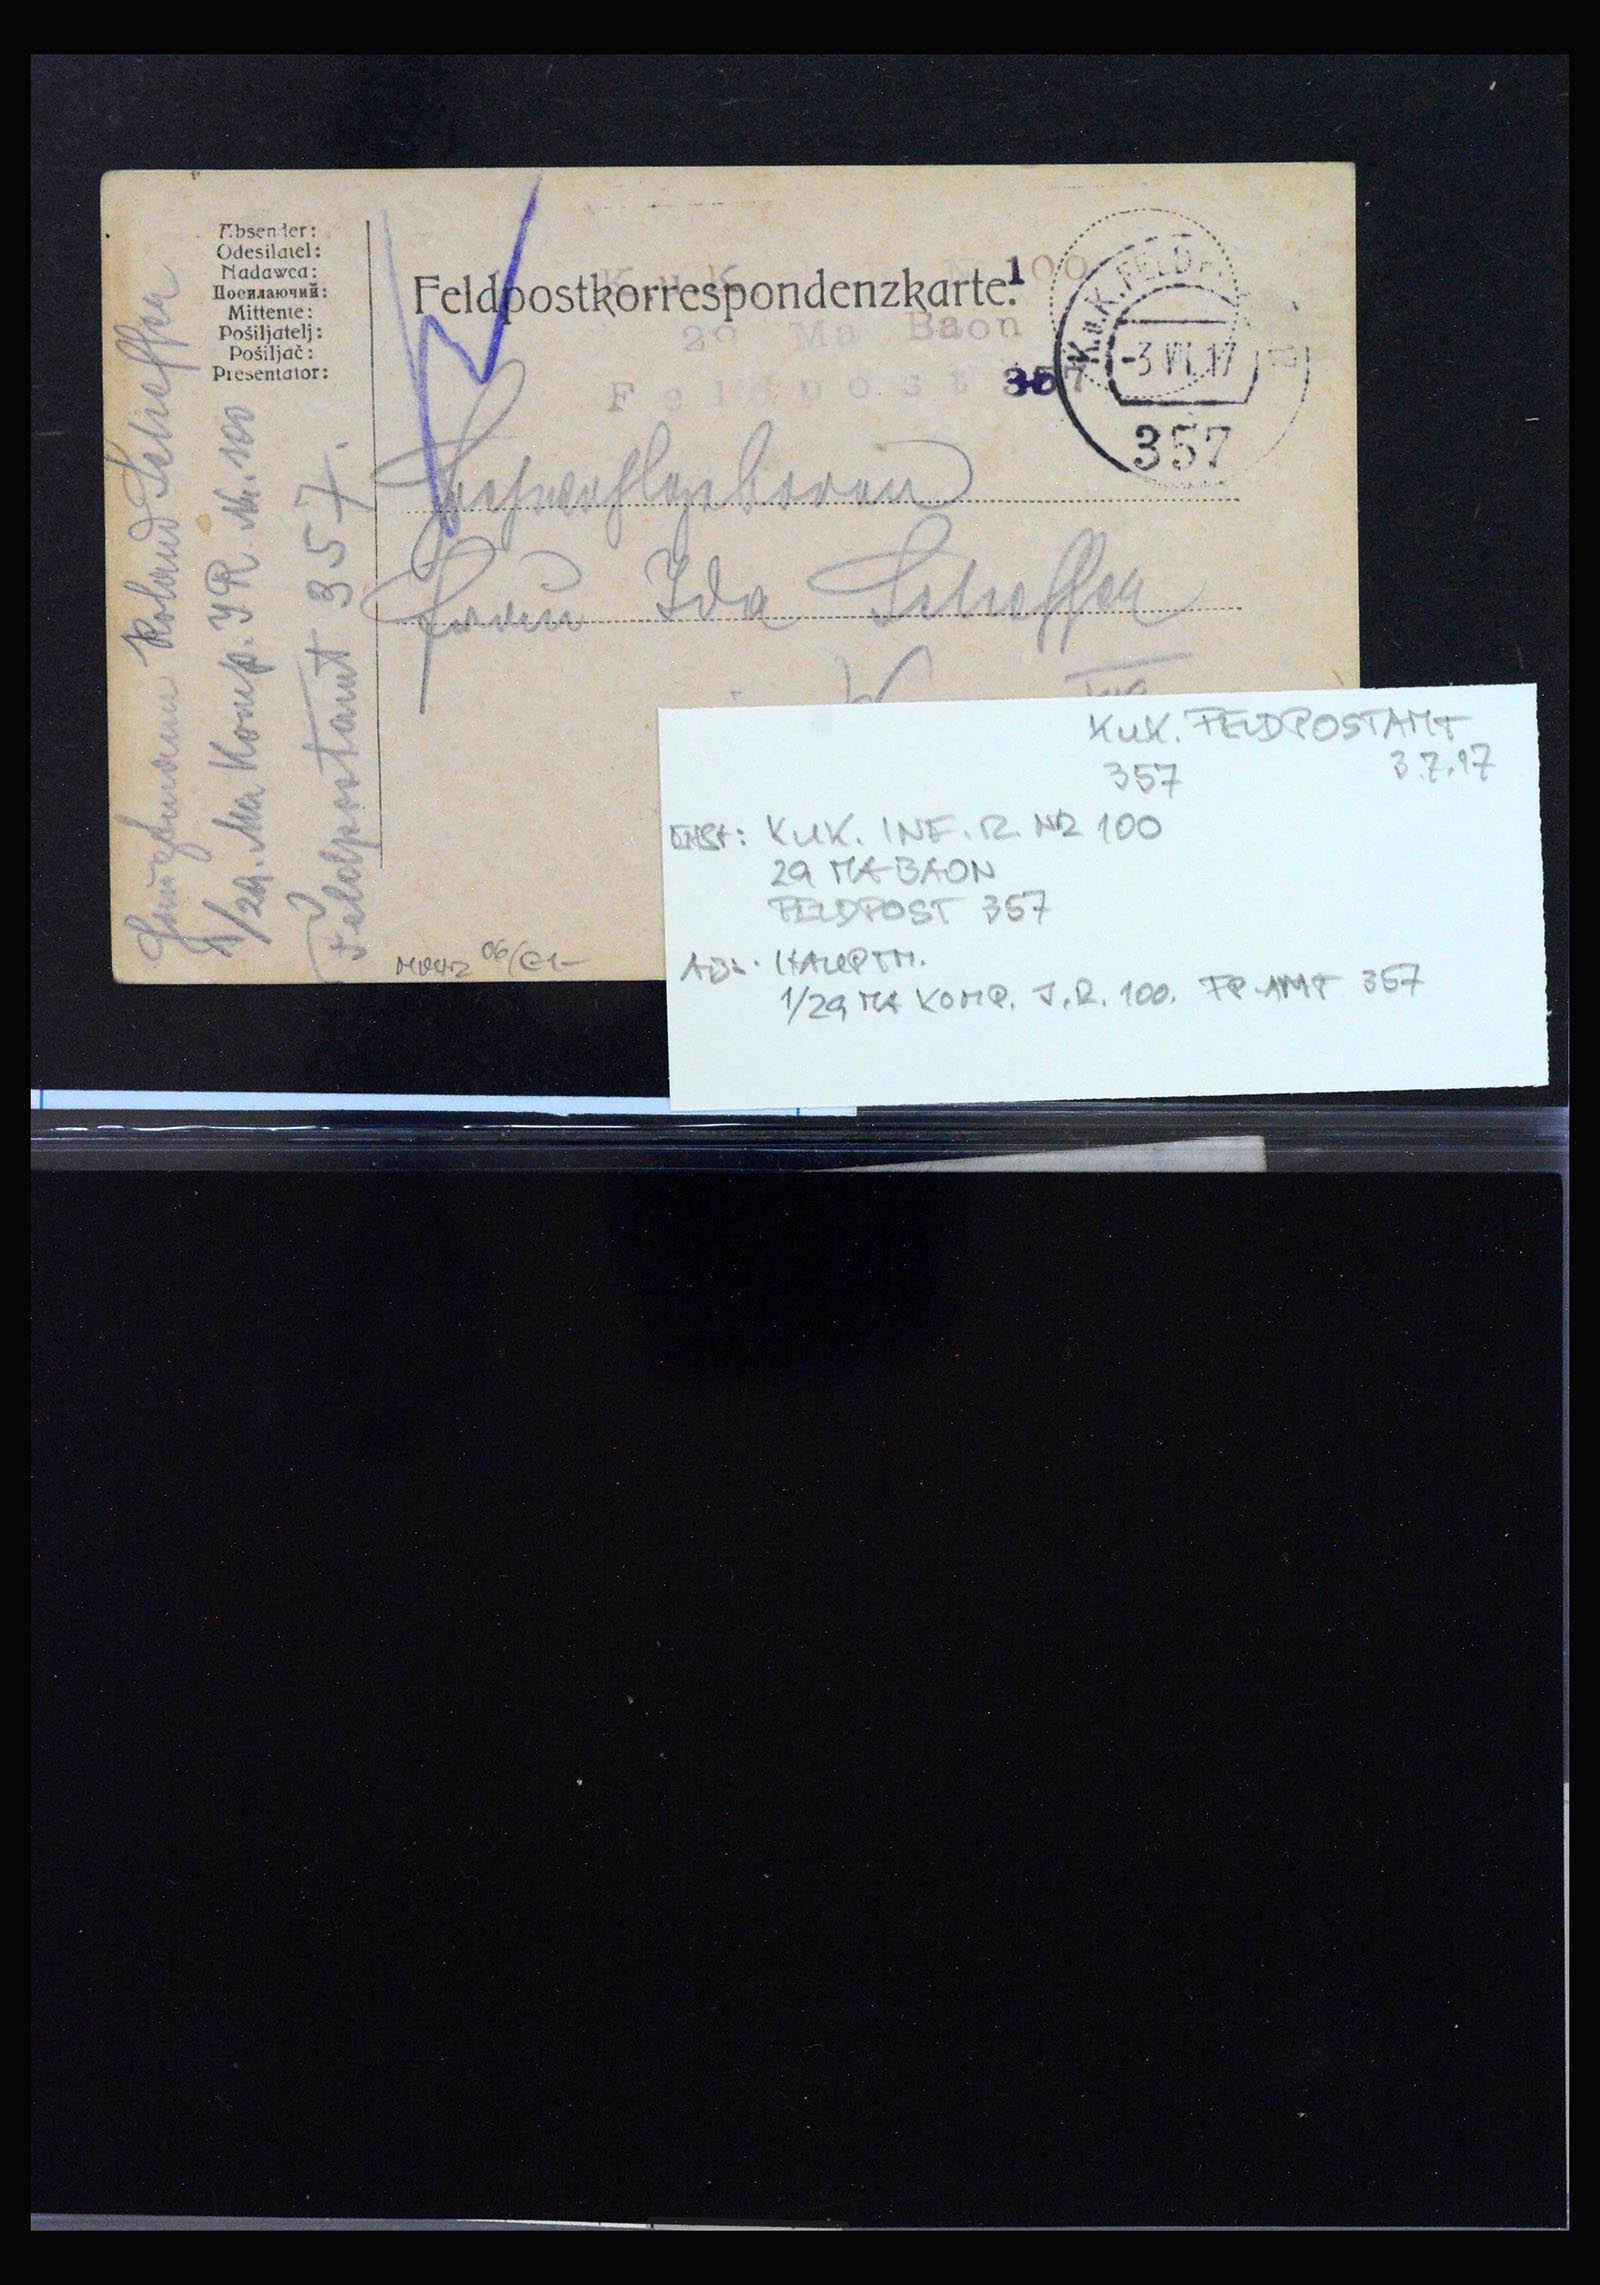 Absender:
Odesilatel:
Nadawca:
Посилаючий:
Mittente:
Pošiljatelj:
Pošiljač:
Presentator:
Hauptmann Roland Scheffer
1/29. Ma Komp. IR. Nr. 100
Feldpostamt 357.
Feldpostkorrespondenzkarte.
K u K 100
29 Ma Baon
Feldpost 357
1
K.u.K. FELDP
-3 VII 17
357
Hochwohlgeboren
Frau Ida Scheffer
06/
K.u.K. FELDPOSTAMT
357 3.7.17
KUK. INF. R. NR 100
29 MA-BAON
FELDPOST 357
ABS. HAUPTM.
1/29 MA KOMP. J.R. 100. FP-AMT 357